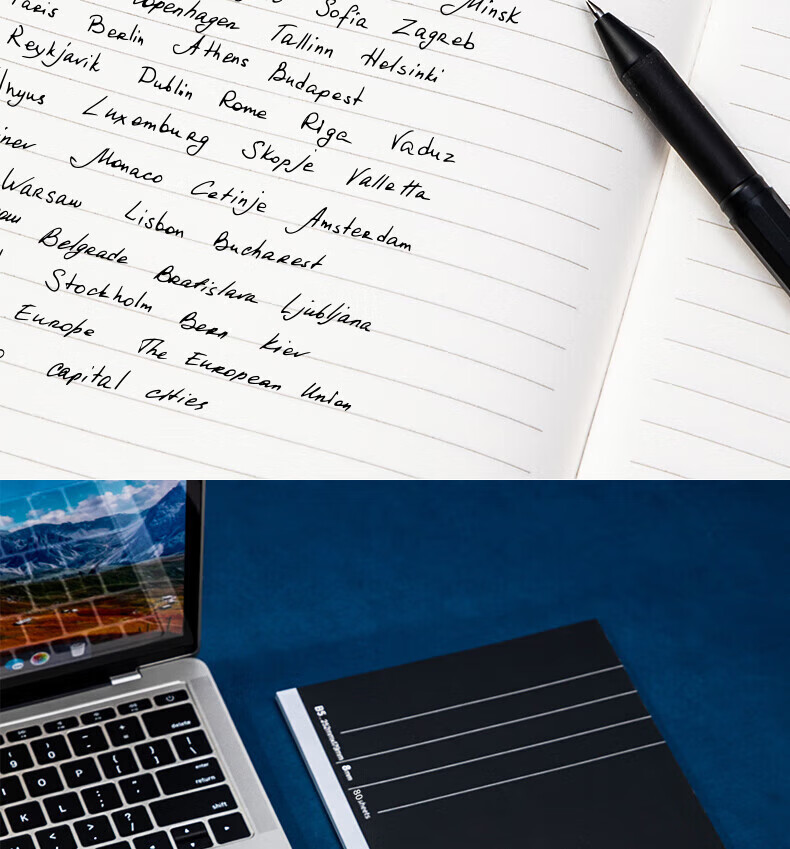 Minsk
Sofia Zagreb
Copenhagen Tallinn Helsinki
Paris Berlin Athens Budapest
Reykjavik Dublin Rome Riga Vaduz
Luxemburg Skopje Valletta
Monaco Cetinje Amsterdam
Warsaw Lisbon Bucharest
Belgrade Bratislava Ljubljana
Stockholm Bern Kiev
Europe The European Union
capital cities
B5, 252mm×179mm 8mm 80sheets
delete
9 0 - _ + =
I O P { [ } ] | \
enter
return
K L : ; " '
shift
< , > . ? /